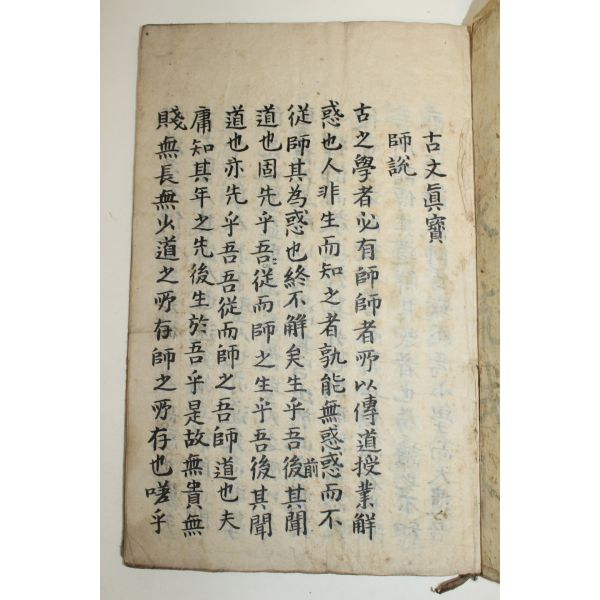 古文眞寶
師說
古之學者必有師師者所以傳道授業解
惑也人非生而知之者孰能無惑惑而不
從師其為惑也終不解矣生乎吾後前其聞
道也固先乎吾〻從而師之生乎吾後其聞
道也亦先乎吾吾從而師之吾師道也夫
庸知其年之先後生於吾乎是故無貴無
賤無長無少道之所存師之所存也嗟乎